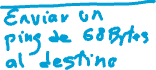 Enviar un
ping de 68 Bytes
al destino